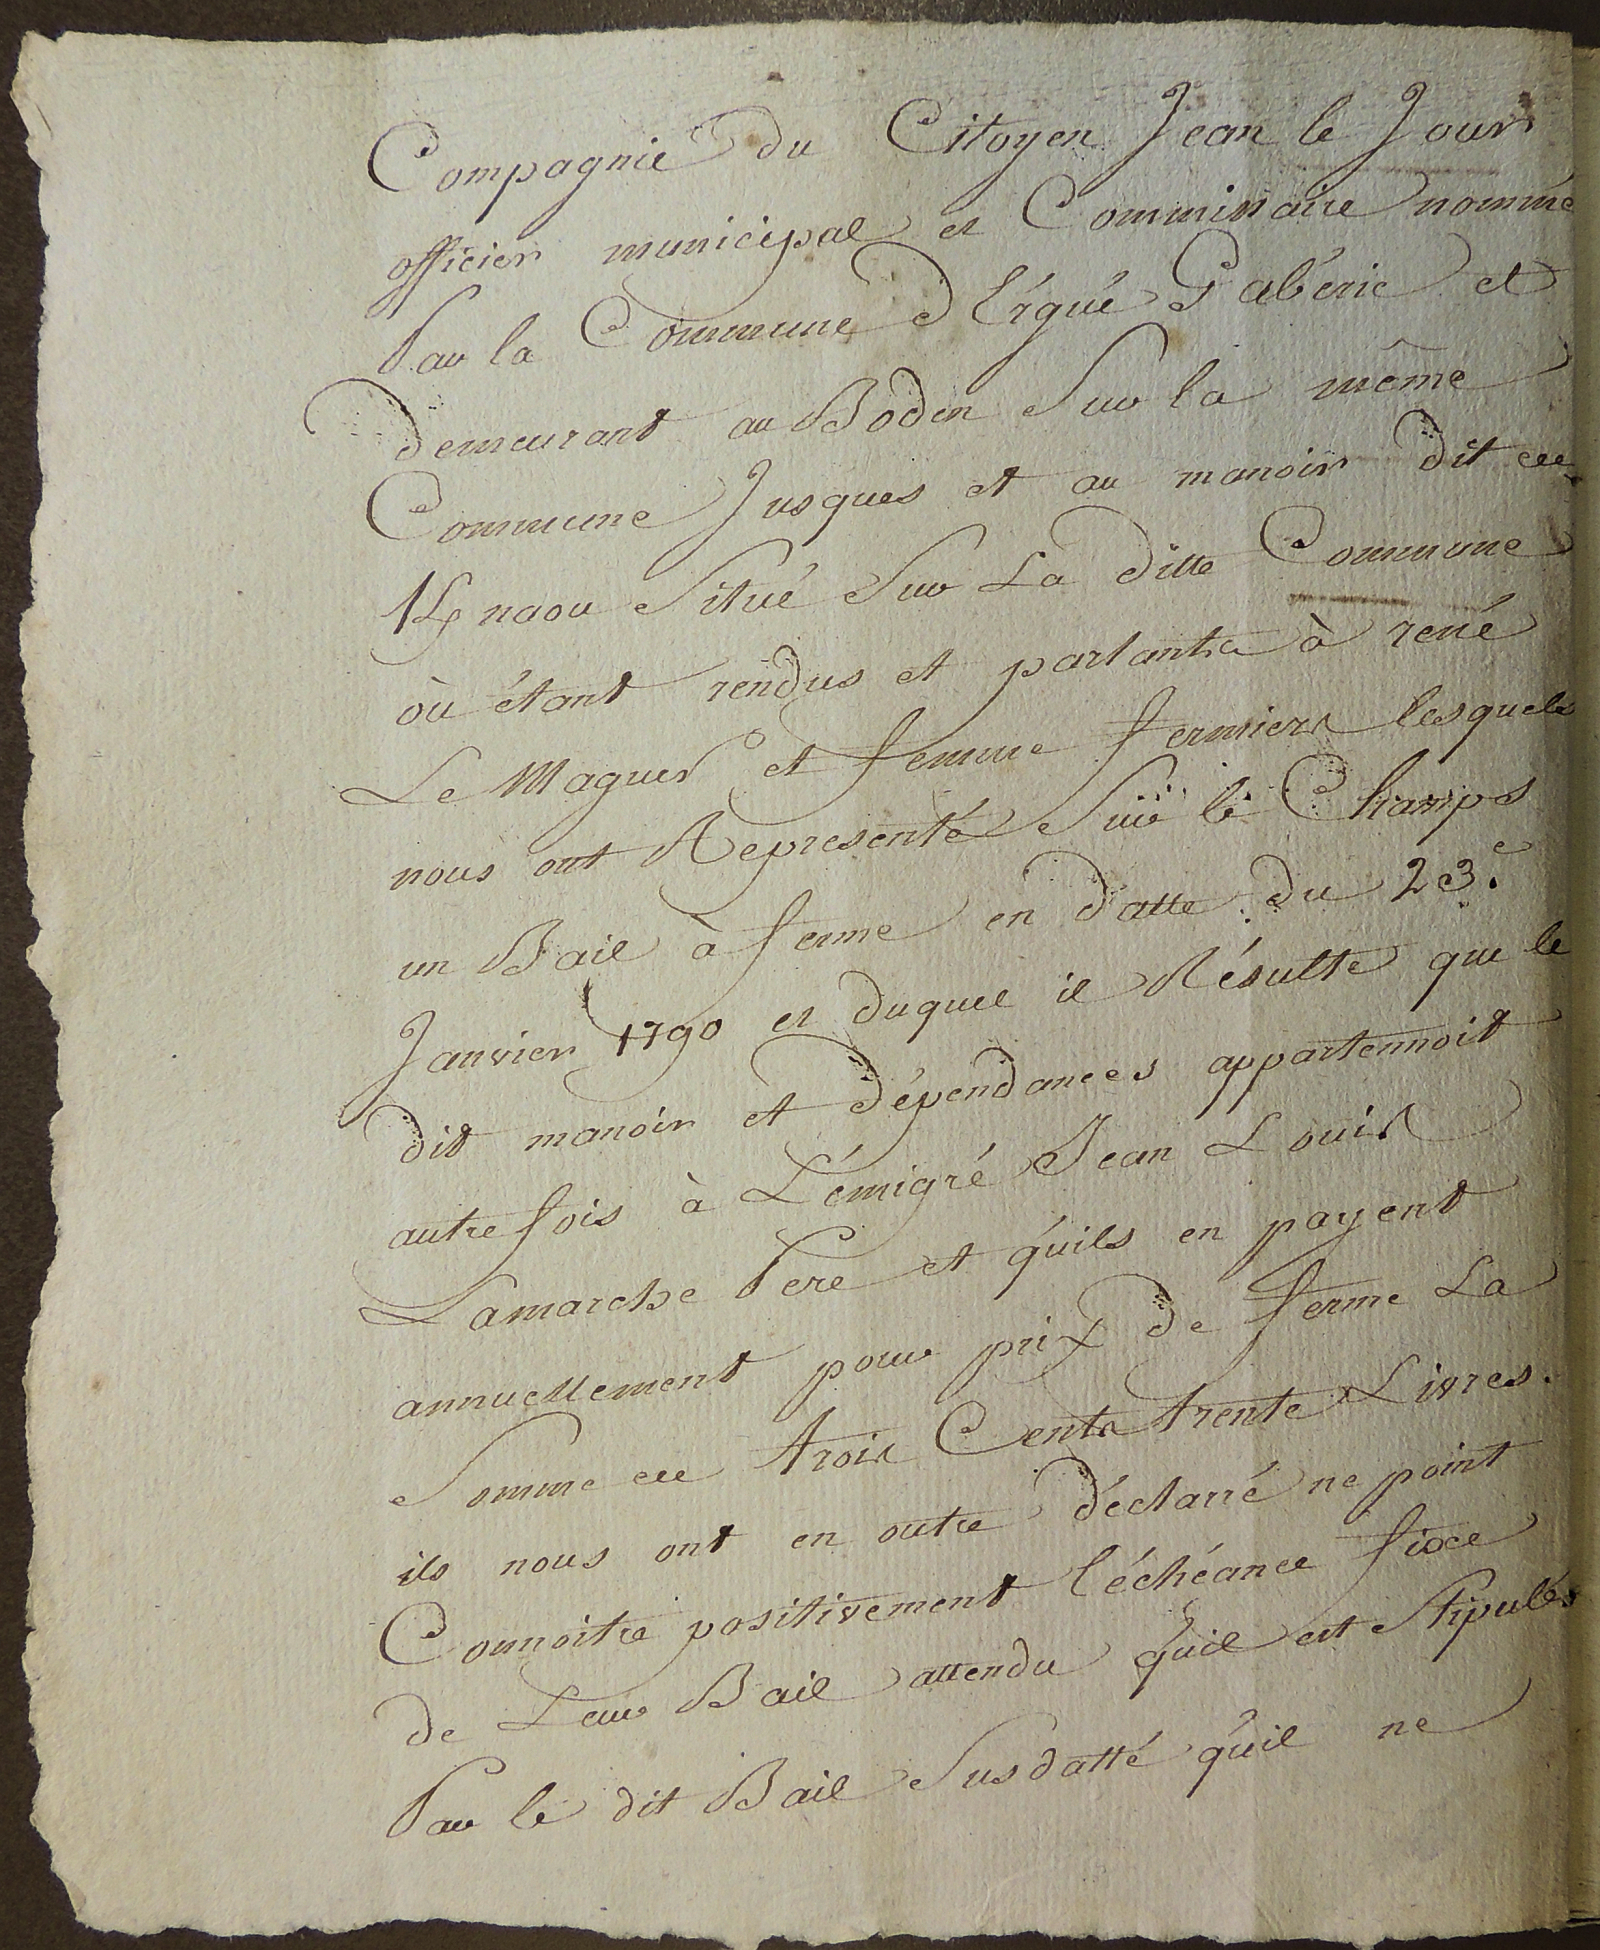 Compagnie du Citoyen Jean le Jour
officier municipal et Commissaire nommé
Par la Commune d'Ergué Gabéric et
demeurant au Boden Sur la même
Commune Jusques et au manoir dit de
K naou Situé Sur La ditte Commune
où étant rendus et parlants à rené
Le Maguer et femme fermiers lesquels
nous ont Representé Sur le Champs
un Bail à ferme en datte du 23.e
Janvier 1790 et duquel il Résulte que le
dit manoir et dépendances appartennoit
autre fois à L'émigré Jean Louis
Lamarche Pere et qu'ils en payent
annuellement pour prix de ferme La
Somme de trois Cents trente Livres.
ils nous ont en outre déclaré ne point
Connoitre positivement l'échéance fixe
de Leur Bail attendu qu'il est Stipulés
Par le dit Bail Susdatté qu'il ne